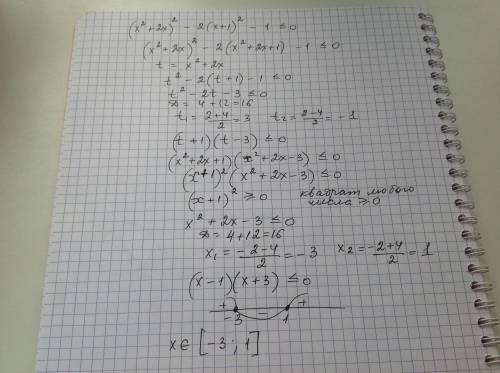 (x² + 2x)² - 2(x+1)² - 1 ≤ 0
(x² + 2x)² - 2(x² + 2x + 1) - 1 ≤ 0
t = x² + 2x
t² - 2(t + 1) - 1 ≤ 0
t² - 2t - 3 ≤ 0
D = 4 + 12 = 16
t₁ = (2+4)/2 = 3 t₂ = (2-4)/2 = -1
(t + 1)(t - 3) ≤ 0
(x² + 2x + 1)(x² + 2x - 3) ≤ 0
(x + 1)² (x² + 2x - 3) ≤ 0
(x + 1)² ≥ 0 квадрат любого
числа ≥ 0
x² + 2x - 3 ≤ 0
D = 4 + 12 = 16
x₁ = (-2-4)/2 = -3 x₂ = (-2+4)/2 = 1
(x - 1)(x + 3) ≤ 0
+ - +
-3 1
x ∈ [-3; 1]